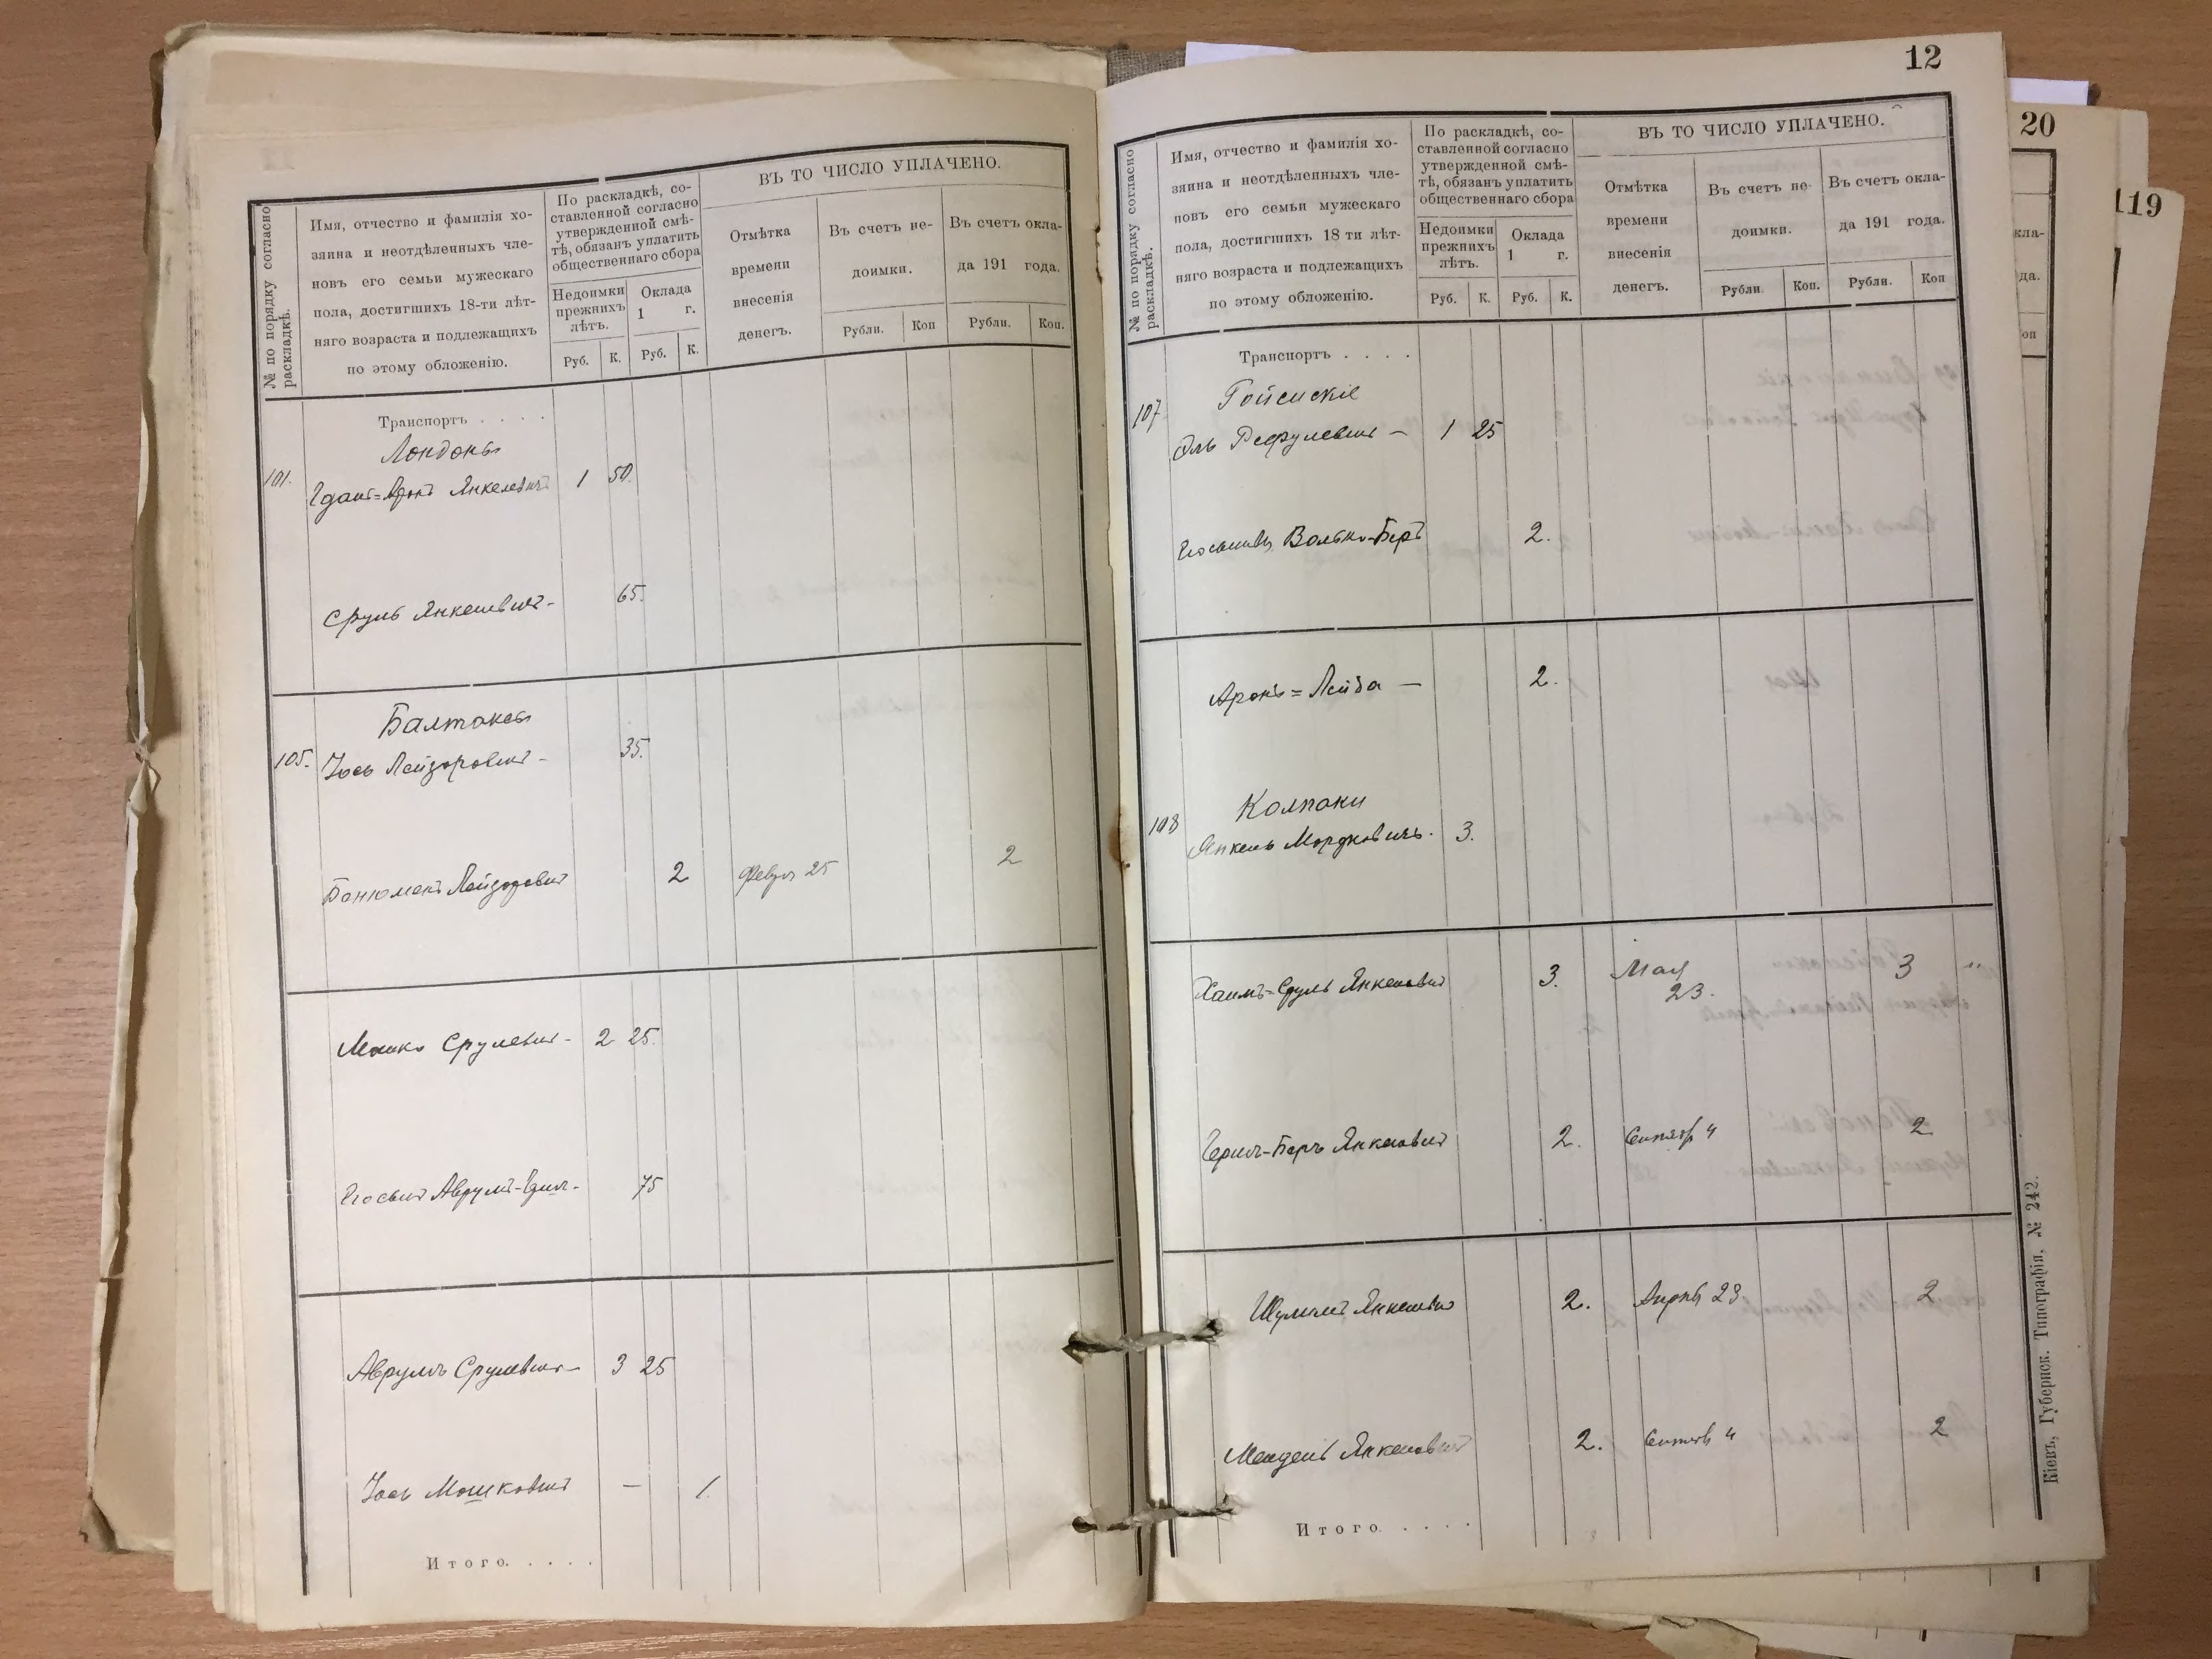 № по порядку согласно
раскладкѣ.
Имя, отчество и фамилія хо-
зяина и неотдѣленныхъ чле-
новъ его семьи мужескаго
пола, достигшихъ 18-ти лѣт-
няго возраста и подлежащихъ
по этому обложенію.
По раскладкѣ, со-
ставленной согласно
утвержденной смѣ-
тѣ, обязанъ уплатить
общественнаго сбора
Недоимки
прежнихъ
лѣтъ.
Оклада
1 г.
Руб. К. Руб. К.
ВЪ ТО ЧИСЛО УПЛАЧЕНО.
Отмѣтка
времени
внесенія
денегъ.
Въ счетъ не-
доимки.
Въ счетъ окла-
да 191 года.
Рубли. Коп Рубли. Коп.
Транспортъ . . . .
Лондоны
101. Аронъ Янкелевичъ 1 50.
Сруль Янкелевичъ - 65.
Балтаксы
105. Іось Лейзоровичъ - 35.
Бенюменъ Лейзоровичъ 2 Февр 25 2
Мошко Срулевичъ - 2 25.
Аврумъ - 75
Аврумъ Срулевичъ - 3 25
Іось Мошковичъ — 1.
Итого. . . . .
12
№ по порядку согласно
раскладкѣ.
Имя, отчество и фамилія хо-
зяина и неотдѣленныхъ чле-
новъ его семьи мужескаго
пола, достигшихъ 18 ти лѣт-
няго возраста и подлежащихъ
по этому обложенію.
По раскладкѣ, со-
ставленной согласно
утвержденной смѣ-
тѣ, обязанъ уплатить
общественнаго сбора
Недоимки
прежнихъ
лѣтъ.
Оклада
1 г.
Руб. К. Руб. К.
ВЪ ТО ЧИСЛО УПЛАЧЕНО.
Отмѣтка
времени
внесенія
денегъ.
Въ счетъ не-
доимки.
Въ счетъ окла-
да 191 года.
Рубли. Коп. Рубли. Коп
Транспортъ . . . .
Гойсискіе
107 Эль - 1 25
Волько-Беръ 2.
Аронъ=Лейба — 2.
Колпаки
108 Янкель Мордковичъ. 3.
Хаимъ=Сруль Янкелевичъ 3. Мая 23. 3 "
Гершъ-Беръ Янкелевичъ 2. Сентяб 4 2
Шулимъ Янкелевичъ 2. Апрѣл 23 2
Мендель Янкелевичъ 2. Сентяб 4 2
Итого. . . . .
Кіевъ, Губернск. Типографія, № 242.
20
119
кла-
да.
оп